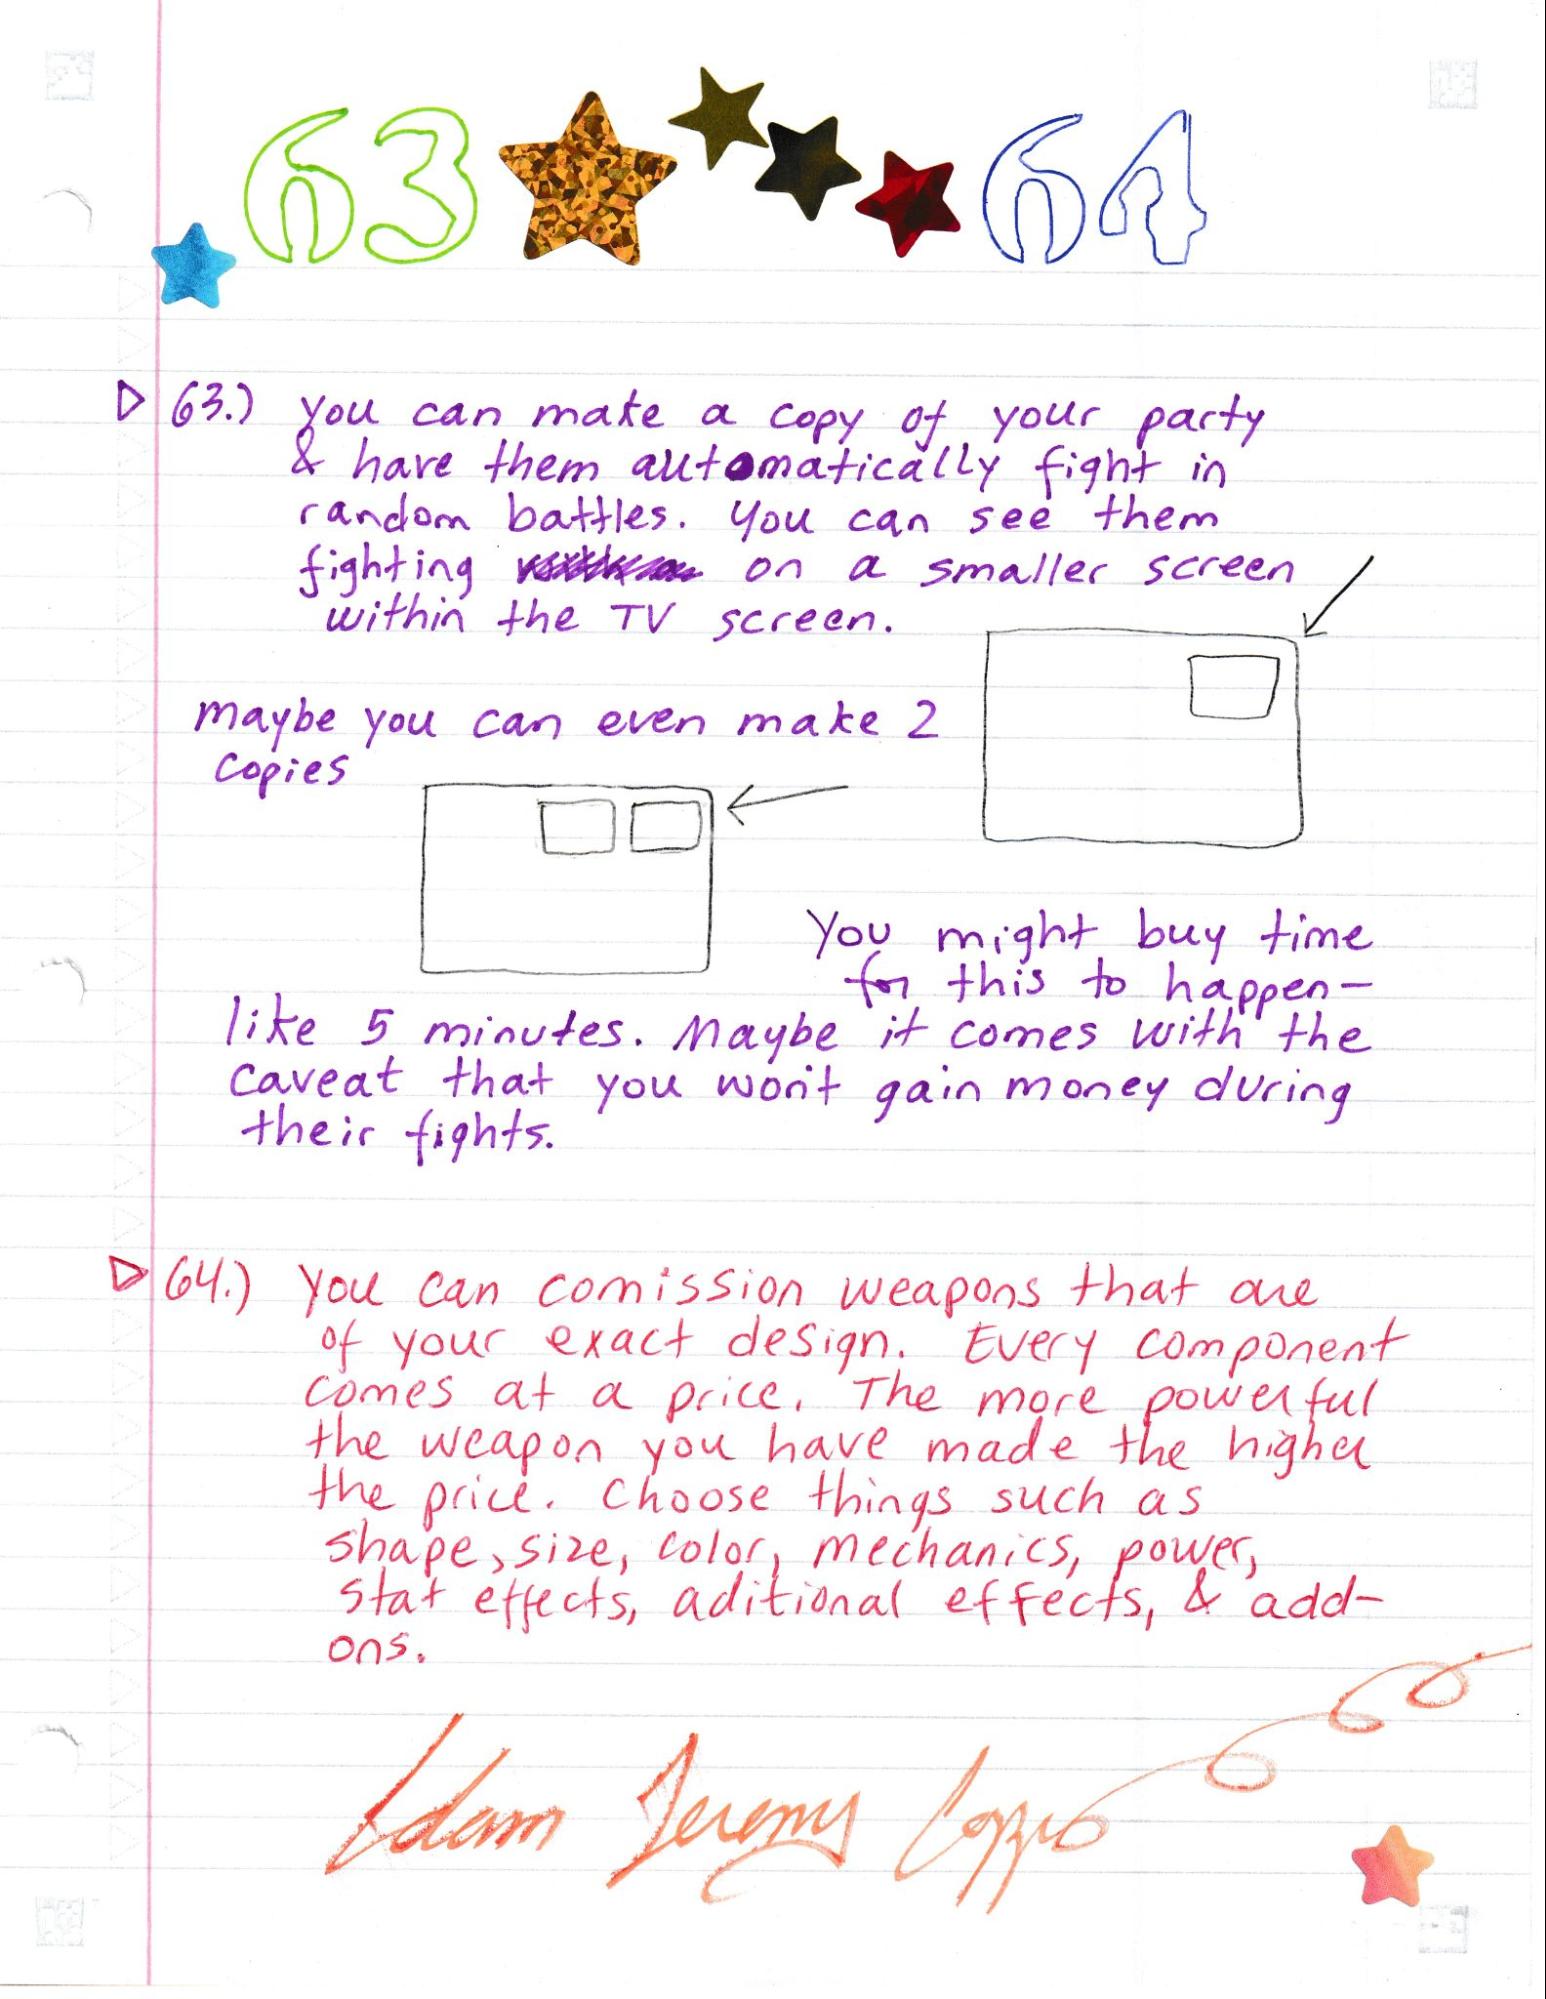 63 64
63.) You can make a copy of your party
& have them automatically fight in
random battles. You can see them
fighting on a smaller screen
within the TV screen.
maybe you can even make 2
copies
You might buy time
for this to happen—
like 5 minutes. Maybe it comes with the
caveat that you won't gain money during
their fights.
64.) You can comission weapons that are
of your exact design. Every component
comes at a price. The more powerful
the weapon you have made the higher
the price. Choose things such as
shape, size, color, mechanics, power,
stat effects, aditional effects, & add-
ons.
Adam Jeremy